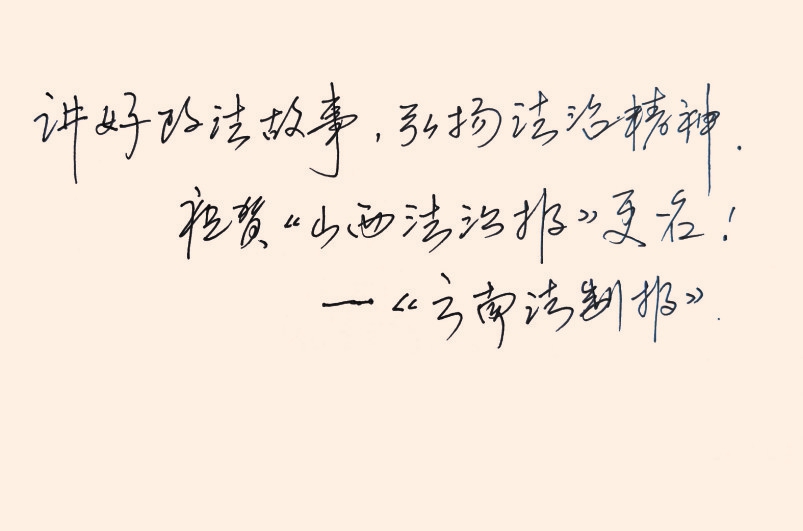 讲好政法故事,弘扬法治精神.
祝贺《山西法治报》更名!
—《云南法制报》.